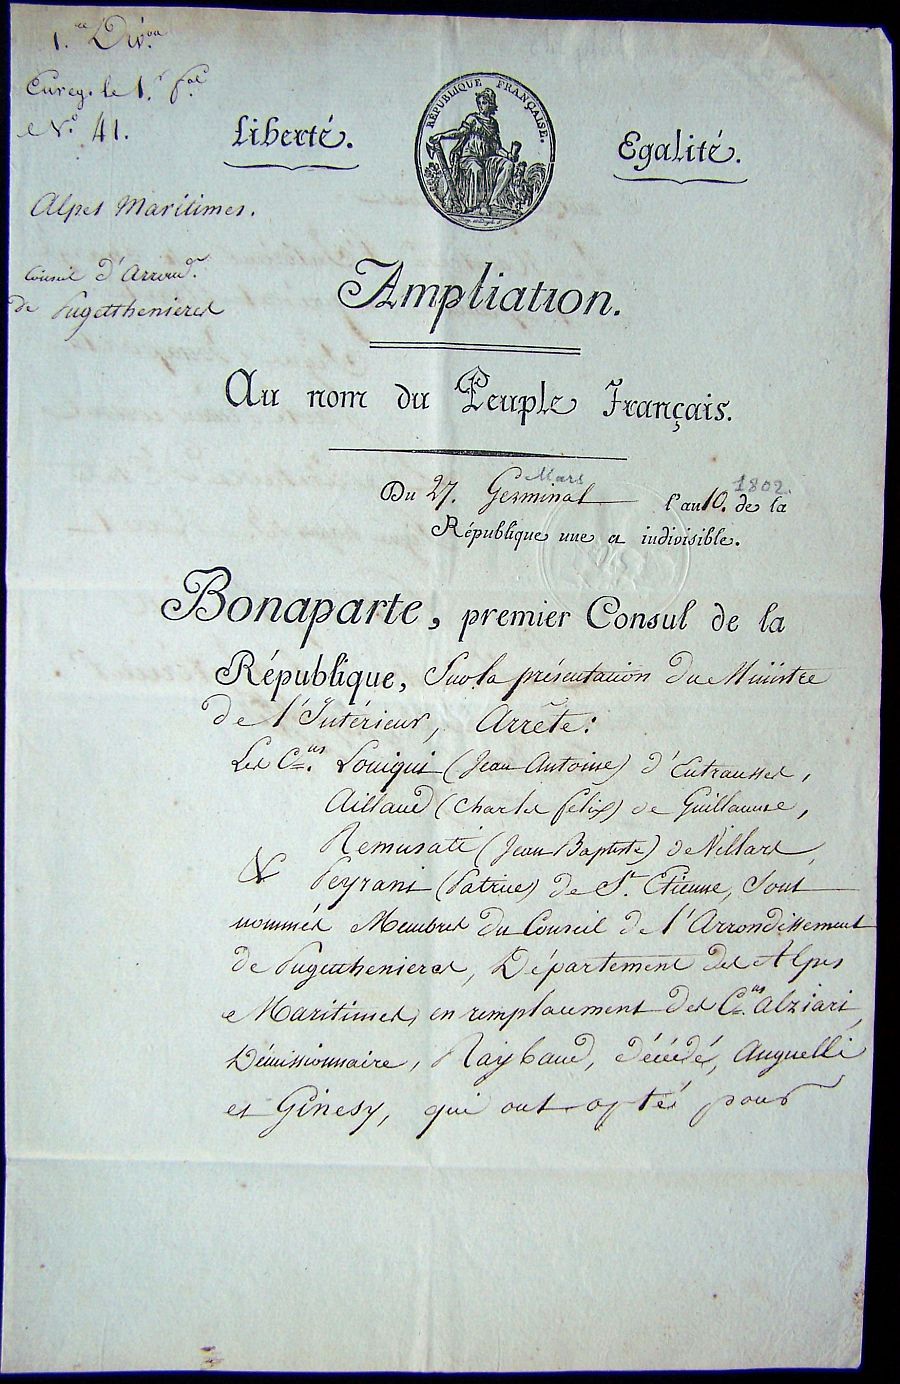 1.ere Div.on
Enreg. le 1.r f.al
N.o 41.
Liberté.
RÉPUBLIQUE FRANÇAISE.
Egalité.
Alpes Maritimes.
Conseil d'Arrond.t
de Pugetthenieres
Ampliation.
Au nom du Peuple Français.
Mars 1802.
Du 27. Germinal l'an 10. de la
République une et indivisible.
Bonaparte, premier Consul de la
République, Sur la présentation du Ministre
de l'Intérieur, Arrête:
Les C.ens Louiqui (Jean Antoine) d'Entrausnes,
Aillaud (Charles félix) de Guillaume,
Remusati (Jean Baptiste) de Villars,
& Peyrani (Patrice) de S.t Etienne, Sont
nommés Membres du Conseil de l'Arrondissement
de Pugetthenieres, Département des Alpes
Maritimes, en remplacement des C.ens alziari,
Démissionnaire, Raybaud, décédé, Auguelli
et Ginesy, qui ont optés pour